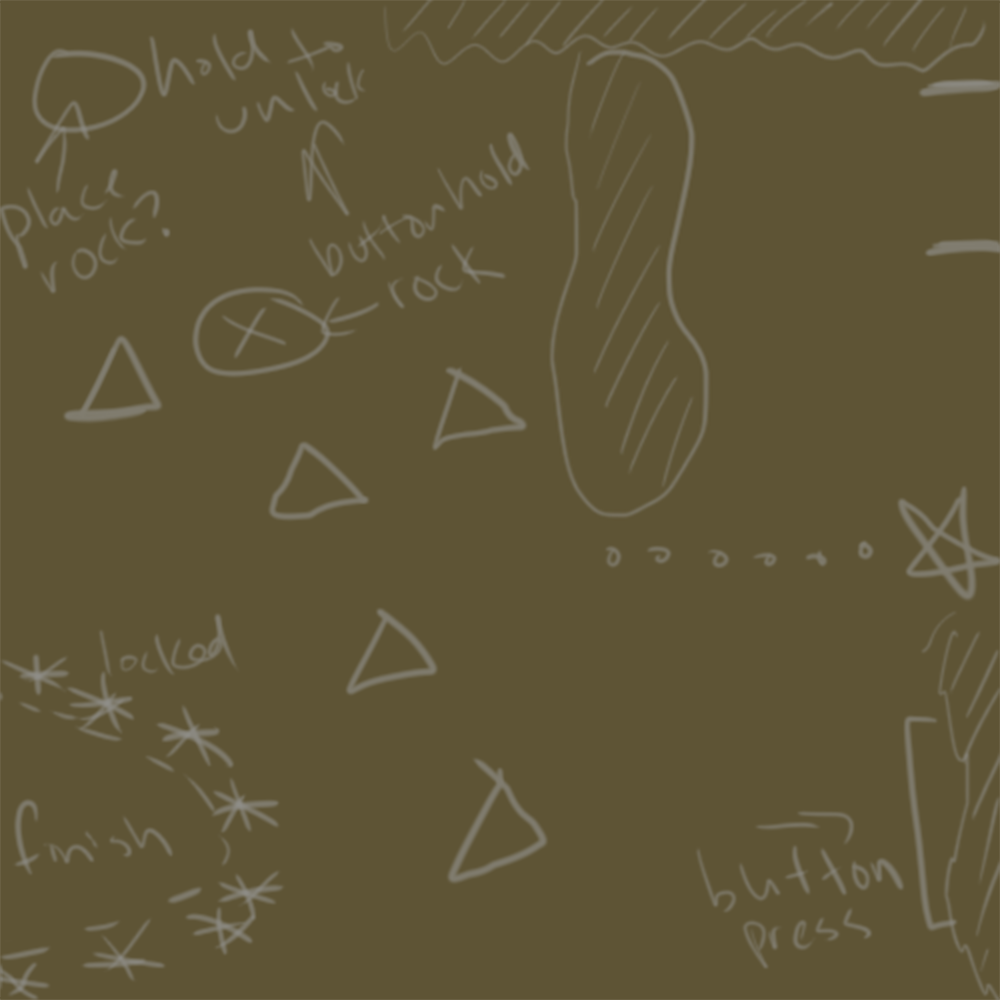 hold to
unlock
place
rock?
button hold
rock
locked
finish
button
press